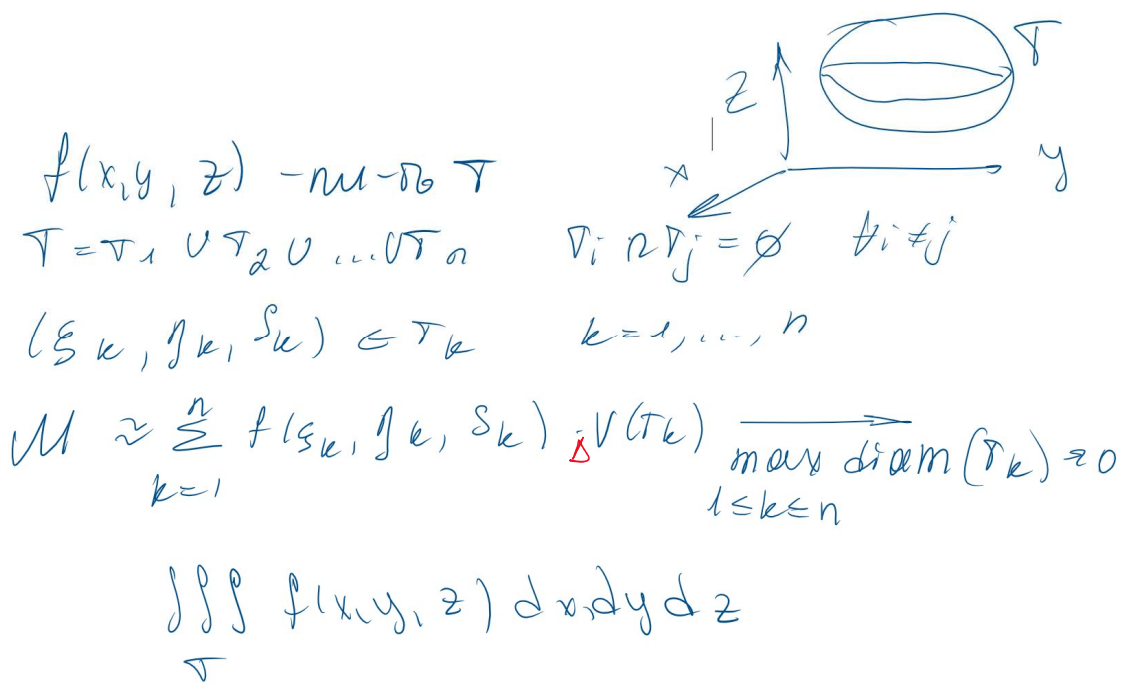 T
z
x
y
f(x,y,z) – пл-ть T
T = T₁ ∪ T₂ ∪ ... ∪ Tₙ    Tᵢ ∩ Tⱼ = ∅    ∀i≠j
(ξₖ, ηₖ, ζₖ) ∈ Tₖ    k=1,...,n
M ≈ ∑ₖ₌₁ⁿ f(ξₖ, ηₖ, ζₖ) · ΔV(Tₖ) ⟶
max diam(Tₖ)→0
1≤k≤n
∭ f(x,y,z) dx,dy dz
T